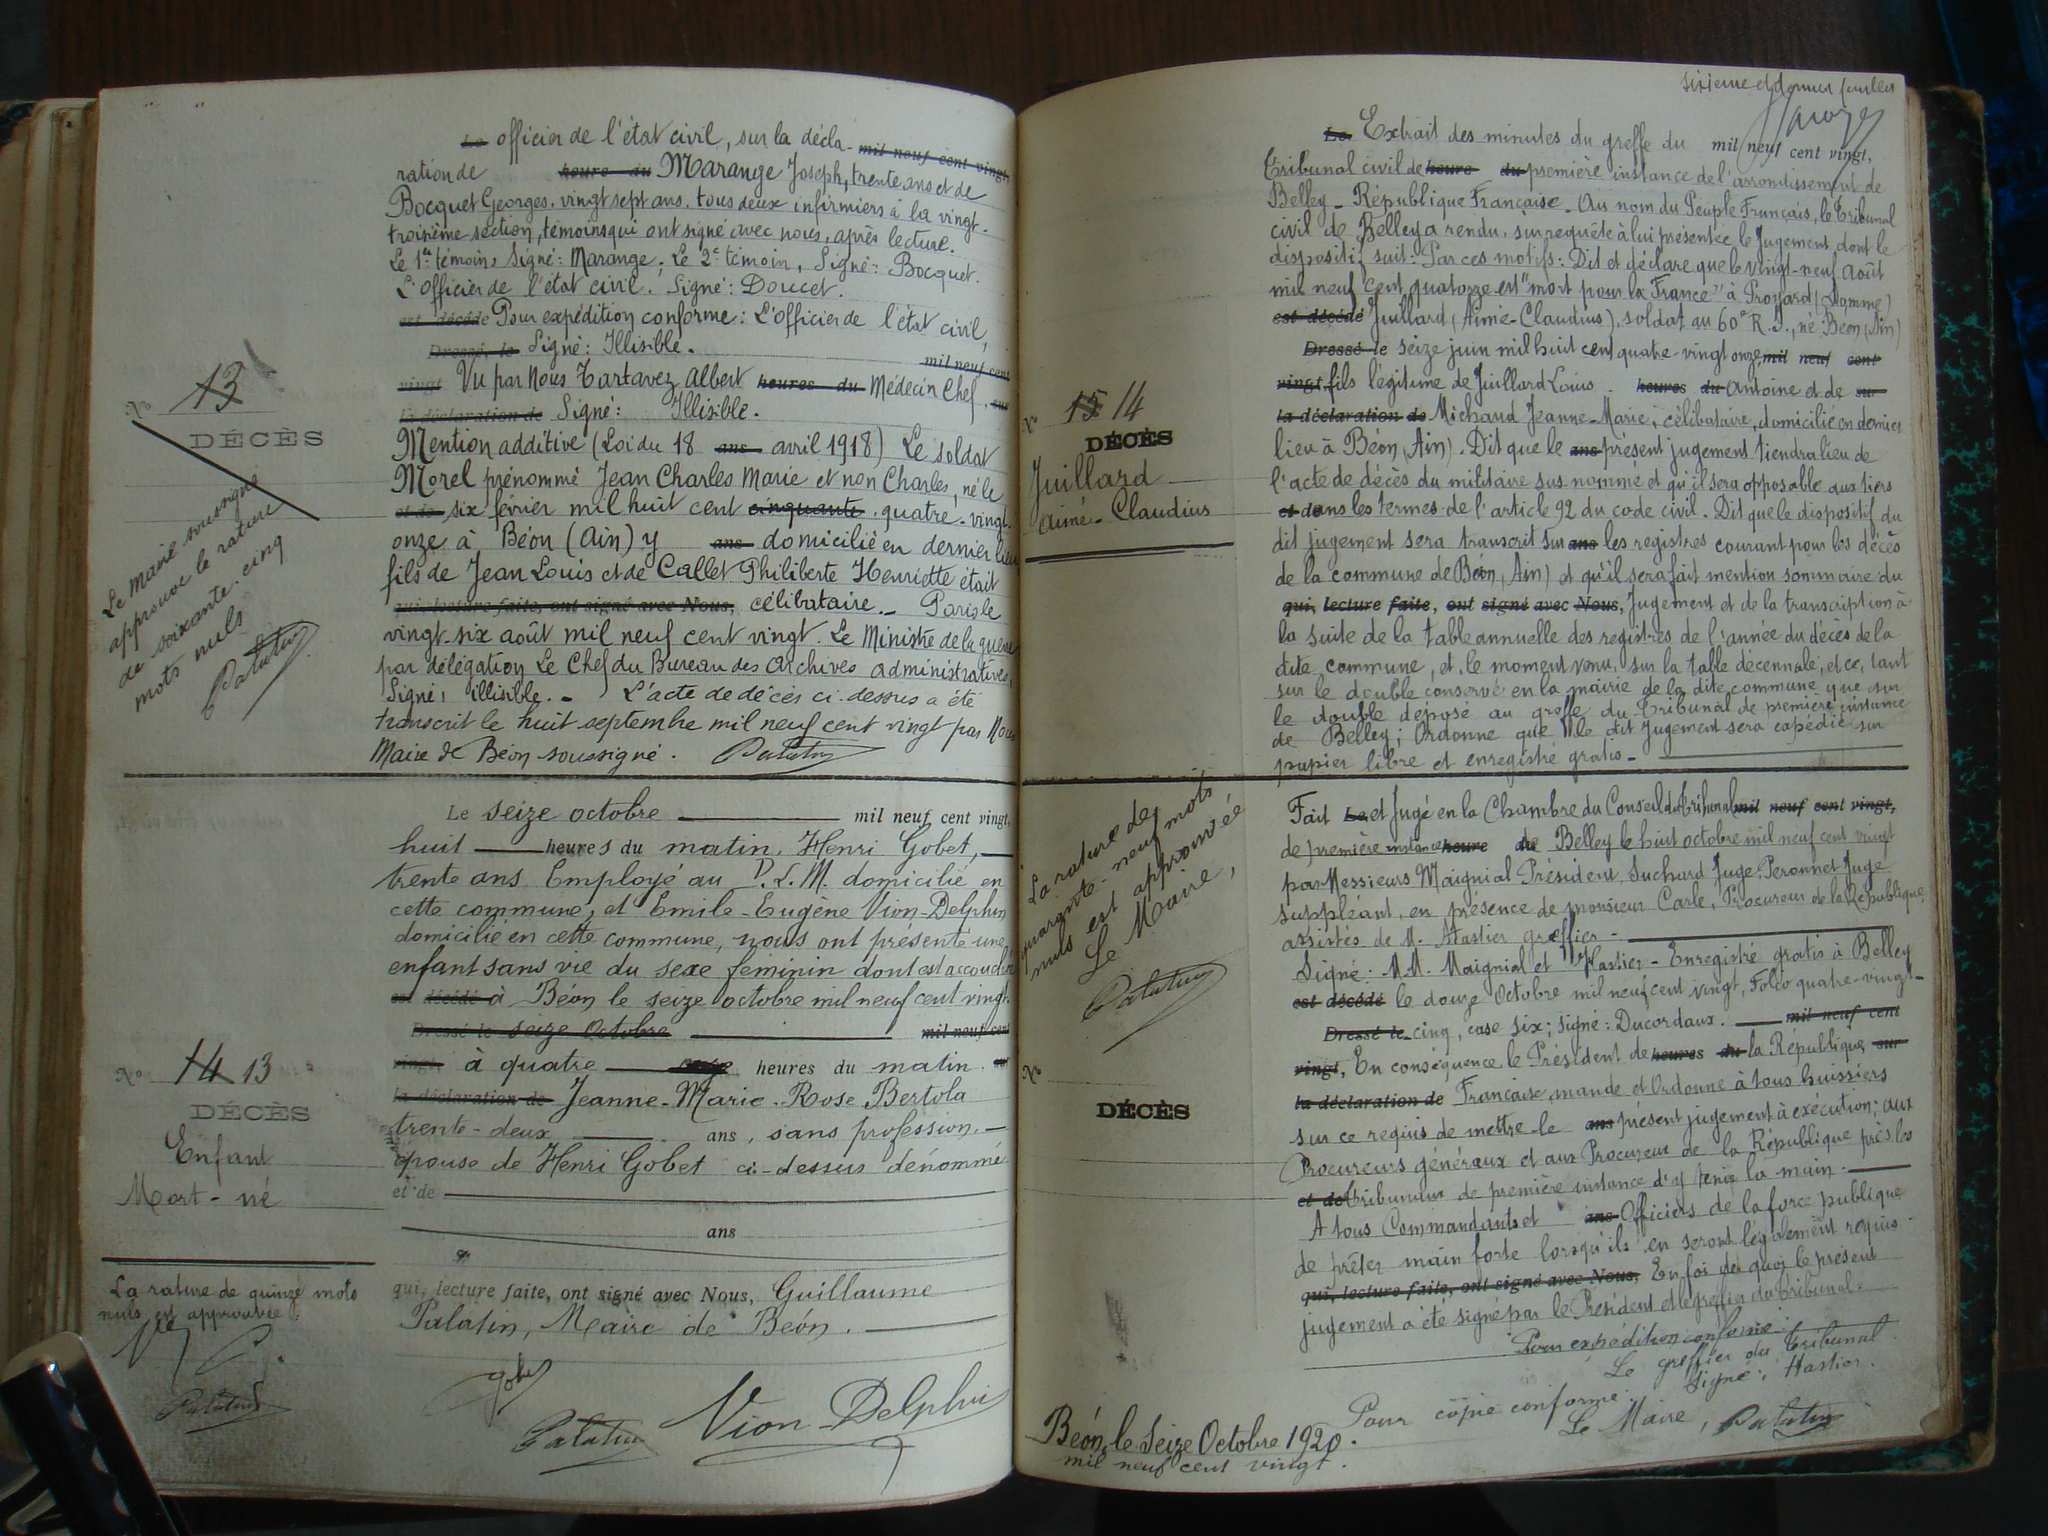 Le officier de l'état civil, sur la décla- mil neuf cent vingt,
ration de heure du Marange Joseph, trente ans et de
Bocquet Georges, vingt sept ans, tous deux infirmiers à la vingt-
troisième section, témoins qui ont signé avec nous, après lecture.
Le 1er témoin, Signé: Marange; Le 2e témoin, Signé: Bocquet.
L'Officier de l'état civil. Signé: Doucet.
est décédé Pour expédition conforme: L'officier de l'état civil,
Dressé le Signé: Illisible. mil neuf cent
vingt Vu par Nous Tartavez Albert heures du Médecin Chef, sur
la déclaration de Signé: Illisible.
Mention additive (Loi du 18 ans avril 1918) Le soldat
Morel prénommé Jean Charles Marie et non Charles, né le
et de six février mil huit cent cinquante quatre-vingt-
onze à Béon (Ain) y ans domicilié en dernier lieu
fils de Jean Louis et de Callet Philiberte Henriette était
qui, lecture faite, ont signé avec Nous, célibataire. Paris le
vingt-six août mil neuf cent vingt. Le Ministre de la guerre
par délégation Le Chef du Bureau des Archives administratives,
Signé: illisible. - L'acte de décès ci-dessus a été
transcrit le huit septembre mil neuf cent vingt par Nous
Maire de Béon soussigné. Palatin
No 13
DÉCÈS
Le Maire soussigné
approuve la rature
de soixante-cinq
mots nuls
Palatin
Le seize octobre mil neuf cent vingt,
huit heures du matin, Henri Gobet,
trente ans Employé au P.L.M. domicilié en
cette commune, et Emile-Eugène Vion-Delphin
domicilié en cette commune, nous ont présenté une
enfant sans vie du sexe féminin dont est accouchée
est décédé à Béon le seize octobre mil neuf cent vingt
Dressé le seize Octobre mil neuf cent
vingt à quatre heures du matin sur
la déclaration de Jeanne-Marie-Rose Bertola
trente-deux ans, sans profession,
épouse de Henri Gobet ci-dessus dénommé
et de
ans
qui, lecture faite, ont signé avec Nous, Guillaume
Palatin, Maire de Béon.
Gobet
Palatin Vion-Delphin
No 14 13
DÉCÈS
Enfant
Mort-né
La rature de quinze mots
nuls est approuvée:
Palatin
sixième et dernier feuillet
Le Extrait des minutes du greffe du mil neuf cent vingt,
Tribunal civil de heure du première instance de l'arrondissement de
Belley - République Française - Au nom du Peuple Français, le Tribunal
civil de Belley a rendu, sur requête à lui présentée le Jugement, dont le
dispositif suit: Par ces motifs: Dit et déclare que le vingt-neuf août
mil neuf cent quatorze est "mort pour la France" à Proyard (Somme)
est décédé Juillard (Aimé-Claudius), soldat au 60e R.I., né Béon (Ain)
Dressé le seize juin mil huit cent quatre-vingt onze mil neuf cent
vingt, fils légitime de Juillard Louis heures du Antoine et de sur
la déclaration de Michaud Jeanne-Marie, célibataire, domicilié en dernier
lieu à Béon (Ain). Dit que le ans présent jugement tiendra lieu de
l'acte de décès du militaire sus nommé et qu'il sera opposable aux tiers
et de dans les termes de l'article 92 du code civil. Dit que le dispositif du
dit jugement sera transcrit sur ans les registres courant pour les décès
de la commune de Béon, Ain) et qu'il sera fait mention sommaire du
qui, lecture faite, ont signé avec Nous, Jugement et de la transcription à
la suite de la table annuelle des registres de l'année du décès de la
dite commune, et, le moment venu, sur la table décennale, et ce, tant
sur le double conservé en la mairie de la dite commune que sur
le double déposé au greffe du Tribunal de première instance
de Belley; Ordonne que le dit Jugement sera expédié sur
papier libre et enregistré gratis -
No 15 14
DÉCÈS
Juillard
Aimé-Claudius
Fait Le et Jugé en la Chambre du Conseil du Tribunal mil neuf cent vingt,
de première instance heure du Belley le huit octobre mil neuf cent vingt
par Messieurs Maignial Président, Suchard Juge, Peronnet Juge
suppléant, en présence de monsieur Carle, Procureur de la République,
assistés de M. Hastier greffier -
Signé: M.M. Maignial et Hastier - Enregistré gratis à Belley
est décédé le douze Octobre mil neuf cent vingt, Folio quatre-vingt-
Dressé le cinq, case six; Signé: Ducordaux. mil neuf cent
vingt, En conséquence le Président de heures du la République sur
la déclaration de Française mande et Ordonne à tous huissiers
sur ce requis de mettre le ans présent jugement à exécution; aux
Procureurs généraux et aux Procureurs de la République près les
et de Tribunaux de première instance d'y tenir la main.
A tous Commandants et ans Officiers de la force publique
de prêter main forte lorsqu'ils en seront légalement requis.
qui, lecture faite, ont signé avec Nous, En foi de quoi le présent
jugement a été signé par le Président et le greffier du Tribunal.
Pour expédition conforme:
Le greffier du Tribunal
Signé: Hastier.
Pour copie conforme:
Le Maire, Palatin
Béon, le Seize Octobre 1920.
mil neuf cent vingt.
La rature de
quarante-neuf mots
nuls est approuvée
Le Maire,
Palatin
No
DÉCÈS